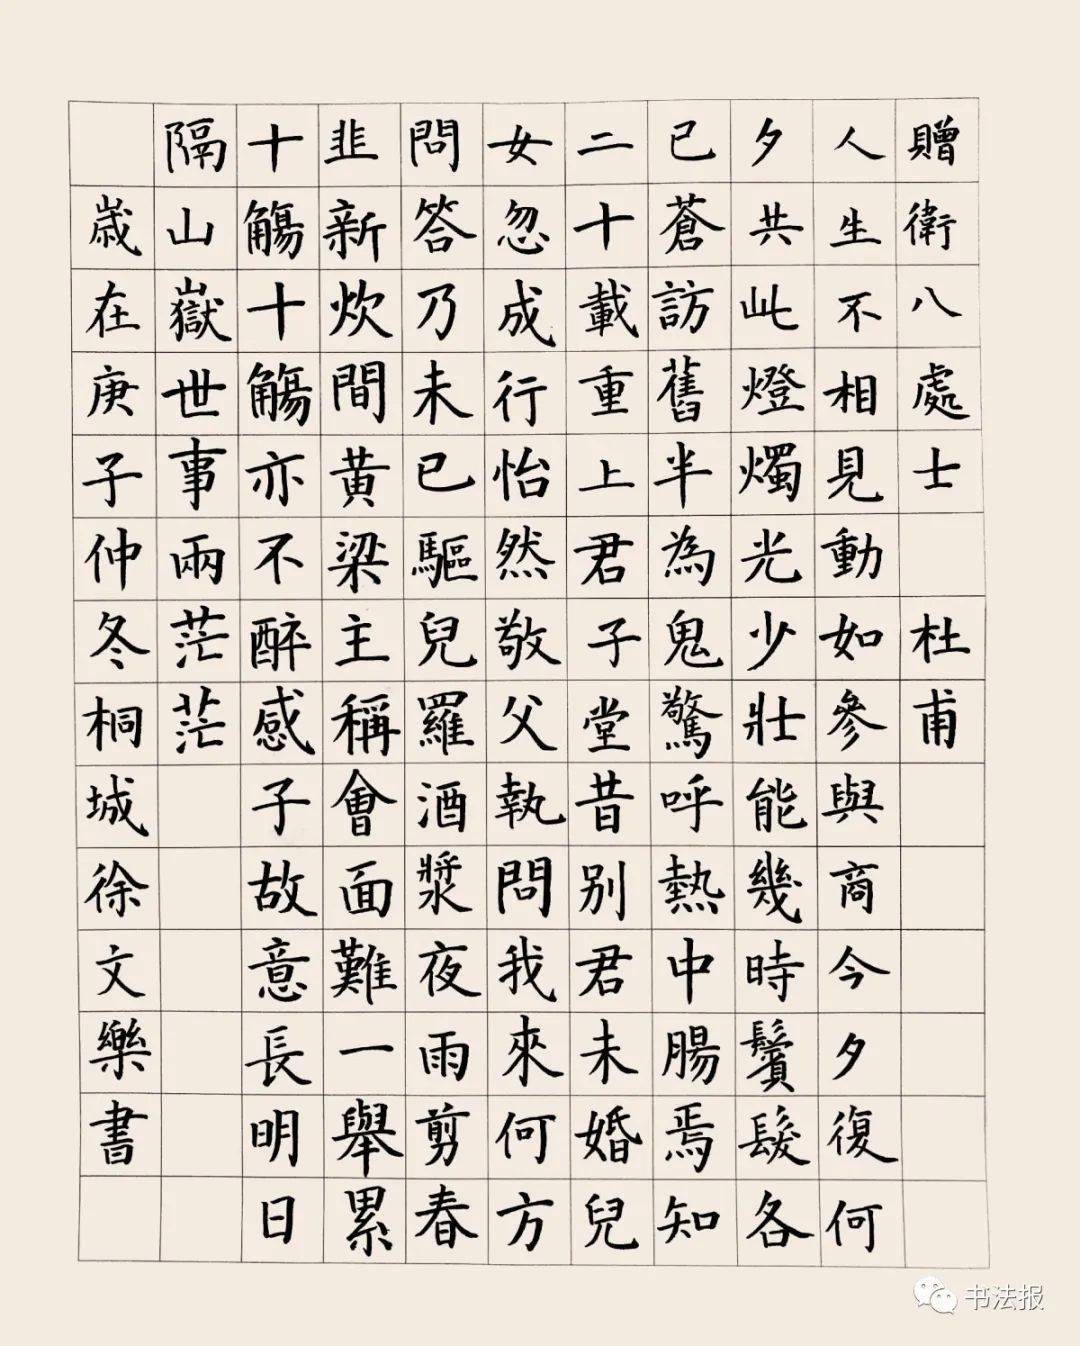 贈衛八處士 杜甫
人生不相見動如參與商今夕復何
夕共此燈燭光少壯能幾時鬢髮各
已蒼訪舊半為鬼驚呼熱中腸焉知
二十載重上君子堂昔别君未婚兒
女忽成行怡然敬父執問我來何方
問答乃未已驅兒羅酒漿夜雨剪春
韭新炊間黄梁主稱會面難一舉累
十觴十觴亦不醉感子故意長明日
隔山嶽世事兩茫茫
歲在庚子仲冬桐城徐文樂書
书法报